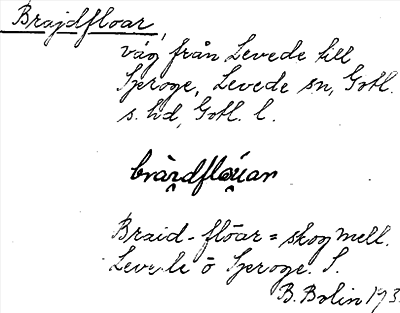 Brajdfloar,
väg från Levede till
Sproge, Levede sn, Gotl.
s. hd, Gotl. l.
Braid-flōar = skog mell.
Levede o Sproge. S.
B. Bolin 193